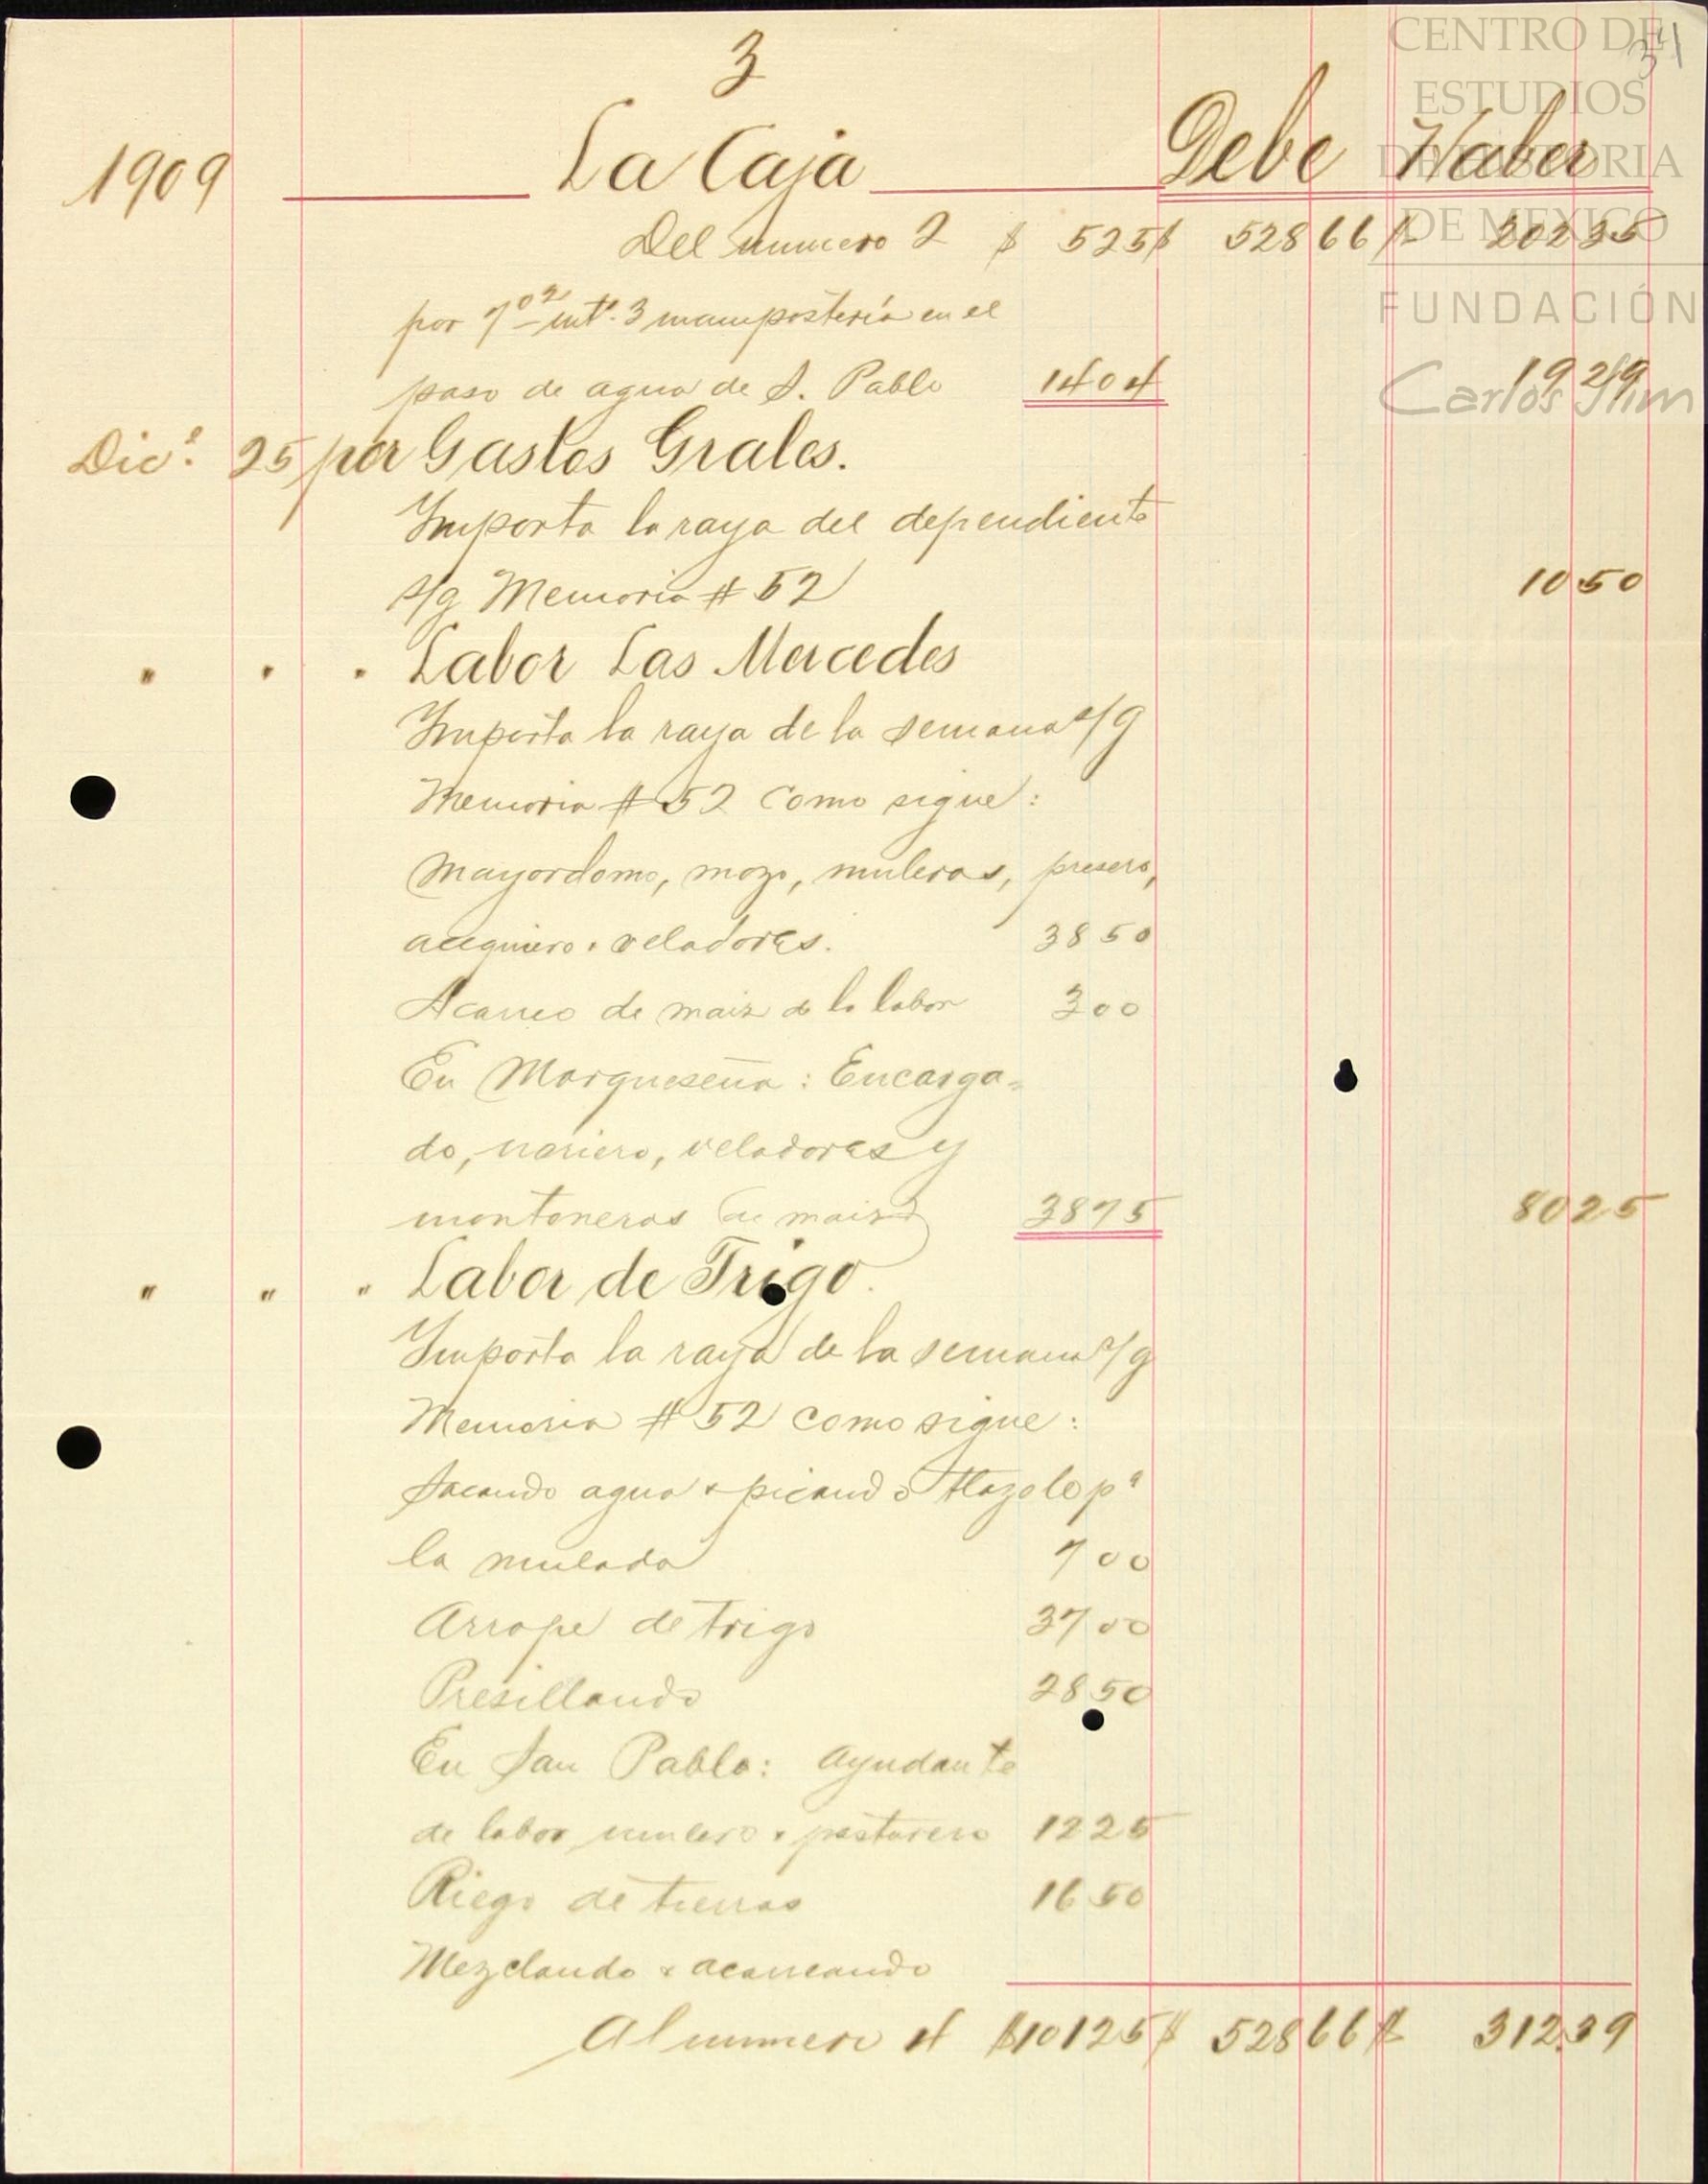 3
34
CENTRO DE
ESTUDIOS
DE HISTORIA
DE MEXICO
FUNDACIÓN
Carlos Slim
1909 La Caja Debe Haber
Del numero 2 $ 525 $ 52866 $ 20235
por 7 mts. 3 mamposteria en el
paso de agua de S. Pablo 1404 1929
Dice. 25 por Gastos Grales.
Importa la raya del dependiente
s/g Memoria # 52 1050
" " " Labor Las Mercedes
Importa la raya de la semana s/g
Memoria # 52 como sigue:
Mayordomo, mozo, muleros, presero,
veladores. 3850
Acarreo de maiz de la labor 300
En Marqueseña: Encarga-
do, noriero, veladores y
montoneros de maiz 3875 8025
" " " Labor de Trigo.
Importa la raya de la semana s/g
Memoria # 52 como sigue:
Sacando agua & picando tlazole pa
la mulada 700
Arrope de trigo 3700
Presillando 2850
En San Pablo: Ayudante
de labor mulero & pasturero 1225
Riego de tierras 1650
Mezclando & acarreando
Al numero 4 $10125 $ 52866 $ 31239